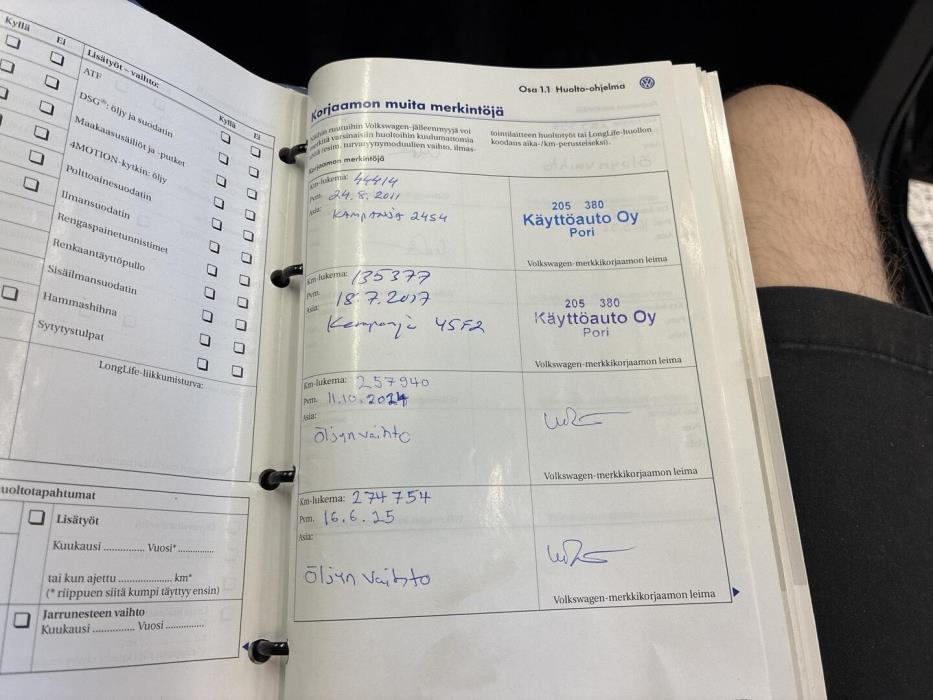 Kyllä
Ei
Lisätyöt – vaihto:
Kyllä
Ei
ATF
DSG®: öljy ja suodatin
Maakaasusäiliöt ja -putket
4MOTION-kytkin: öljy
Polttoainesuodatin
Ilmansuodatin
Rengaspainetunnistimet
Renkaantäyttöpullo
Sisäilmansuodatin
Hammashihna
Sytytystulpat
LongLife-liikkumisturva:
uoltotapahtumat
Lisätyöt
Kuukausi .............. Vuosi* ..............
tai kun ajettu .................... km*
(* riippuen siitä kumpi täyttyy ensin)
Jarrunesteen vaihto
Kuukausi .............. Vuosi ..............
Osa 1.1 Huolto-ohjelma
Korjaamon muita merkintöjä
ruutuihin Volkswagen-jälleenmyyjä voi
merkitä varsinaisiin huoltoihin kuulumattomia
(esim. turvatyynymoduulien vaihto, ilmas-
tointilaitteen huoltotyöt tai LongLife-huollon
koodaus aika-/km-perusteiseksi).
Korjaamon merkintöjä
Km-lukema: 44414
Pvm. 24.8.2011
Asia: KAMPANJA 24S4
205 380
Käyttöauto Oy
Pori
Volkswagen-merkkikorjaamon leima
Km-lukema: 135377
Pvm. 18.7.2017
Asia:
Kampanja 45F2
205 380
Käyttöauto Oy
Pori
Volkswagen-merkkikorjaamon leima
Km-lukema: 257940
Pvm. 11.10.2024
Asia:
Öljynvaihto
Volkswagen-merkkikorjaamon leima
Km-lukema: 274754
Pvm. 16.6.25
Asia:
Öljyn vaihto
Volkswagen-merkkikorjaamon leima